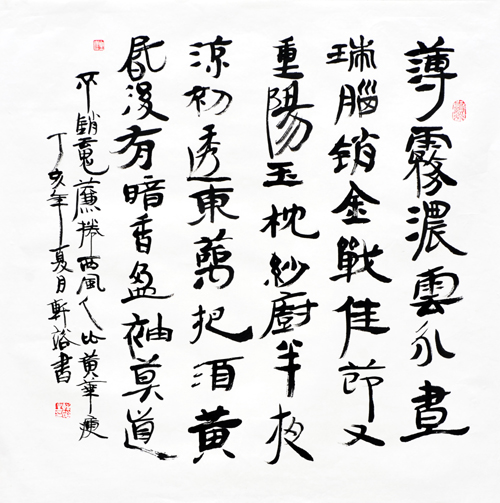 薄霧濃雲永晝
瑞腦銷金戰佳節又
重陽玉枕紗廚半夜
涼初透東籬把酒黃
昏後有暗香盈袖莫道
不銷魂簾捲西風人比黃華瘦
丁亥年夏月軒洛書